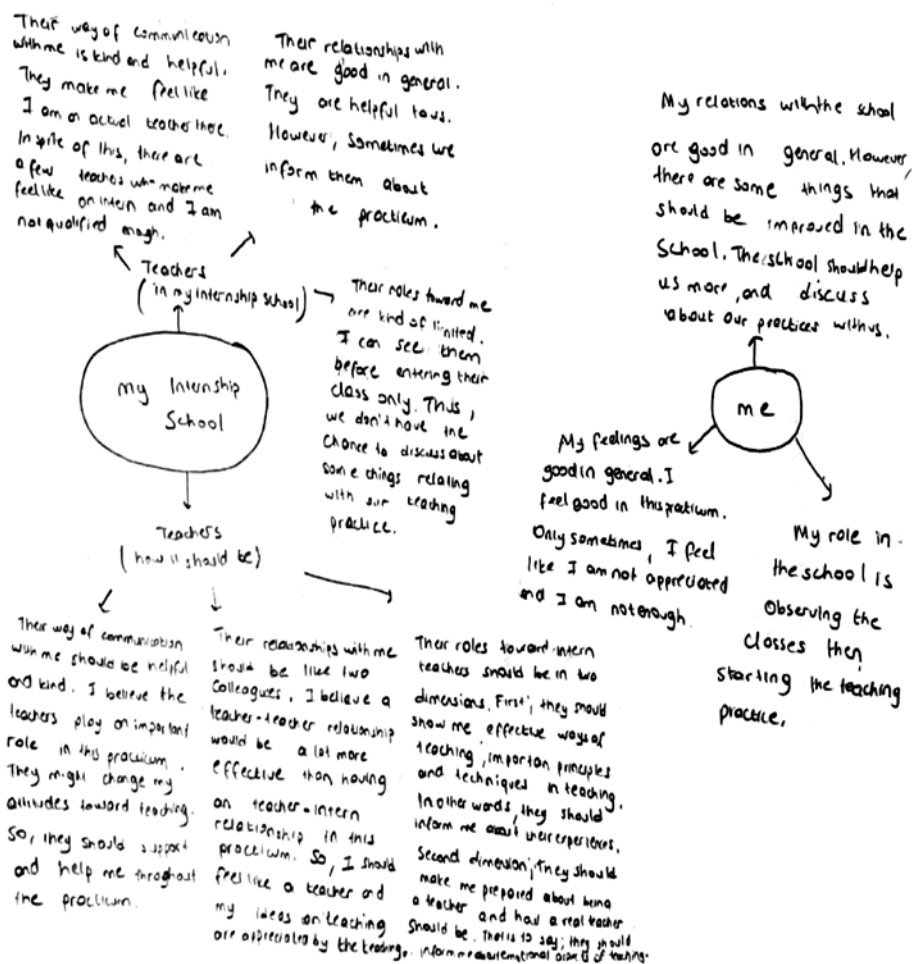 Their way of communication
with me is kind and helpful.
They make me feel like
I am an actual teacher there.
In spite of this, there are
a few teachers who make me
feel like an intern and I am
not qualified enogh.
Their relationships with
me are good in general.
They are helpful to us.
However, sometimes we
inform them about
the practicum.
Teachers
(in my internship school)
Their roles toward me
are kind of limited.
I can see them
before entering their
class only. Thus,
we don't have the
chance to discuss about
some things relating
with our teaching
practice.
my Internship
School
Teachers
(how it should be)
Their way of communication
with me should be helpful
and kind. I believe the
teachers play an important
role in this practicum.
They might change my
attitudes toward teaching.
So, they should support
and help me throghout
the practicum.
Their relationships with me
should be like two
colleagues. I believe a
teacher-teacher relationship
would be a lot more
effective than having
an teacher-intern
relationship in this
practicum. So, I should
feel like a teacher and
my ideas on teaching
are appreciated by the teachng.
Their roles toward intern
teachers should be in two
dimensions. First; they should
show me effective ways of
teaching, importan principles
and techniques in teaching.
In other words, they should
inform me about their experiences.
Second dimension; They should
make me prepared about being
a teacher and how a real teacher
should be. That is to say; they should
inform me about emotional aspects of teaching.
My relations with the school
are good in general. However,
there are some things that
should be improved in the
school. The school should help
us more, and discuss
about our practices with us.
me
My feelings are
good in general. I
feel good in this practium.
Only sometimes, I feel
like I am not appreciated
and I am not enough.
My role in
the school is
observing the
classes then
starting the teaching
practice.